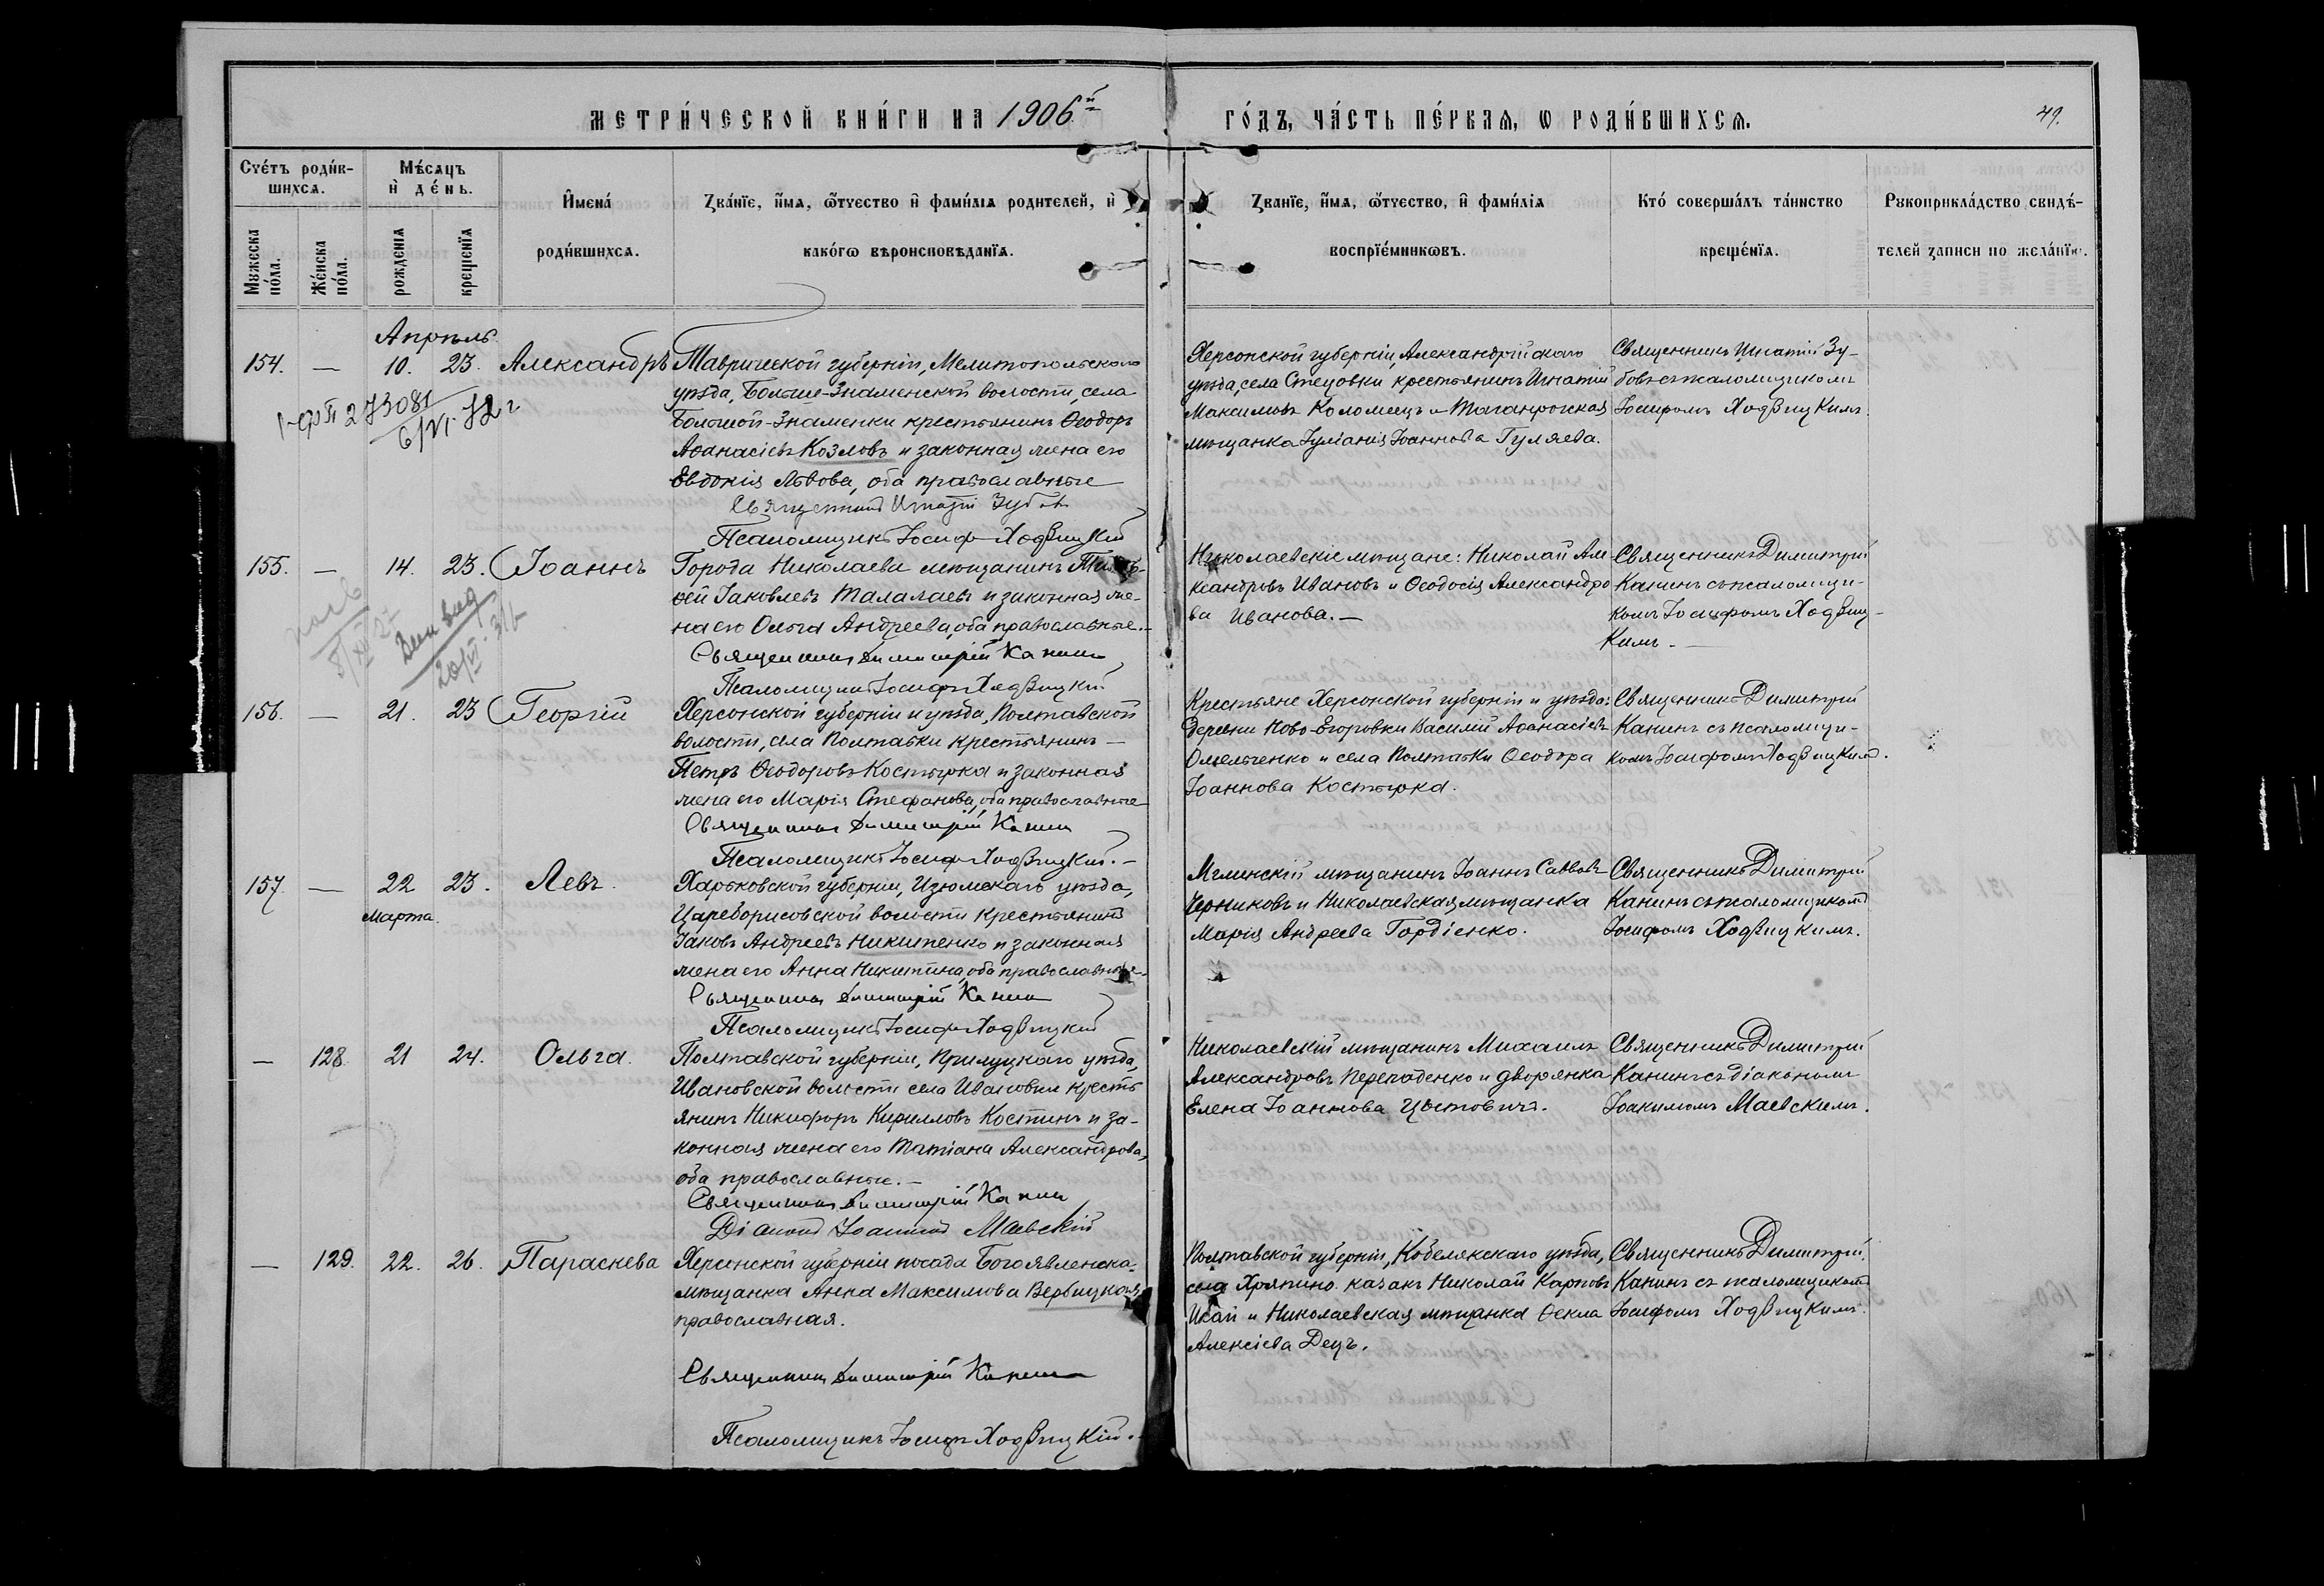 МЕТРИ́ЧЕСКОЙ КНИ́ГИ НА 1906й
ГО́ДЪ, ЧА́СТЬ ПЕ́РВАЯ, Ѡ РОДИ́ВШИХСЯ.
49.
Счетъ роди́вшихся.
Мѣ́сяцъ и де́нь.
Мужеска по́ла.
Же́нска по́ла.
рожденія
крещенія
Имена́
роди́вшихся.
Зва́нїе, и́мя, ѻ҆́тчество и фами́лія родителей, и
како́гѡ вѣроисповѣданїя.
Зва́нїе, и́мя, ѻ҆́тчество, и фами́лїя
воспрїе́мникѡвъ.
Кто́ соверша́лъ та́инство
креще́нїя.
Рукоприкла́дство свидѣ́-
телей записи по жела́нїю.
Апрѣль
154. — 10. 23. Александръ
Таврической губерніи, Мелитопольскаго
уѣзда, Больше-Знаменской волости, села
Большой-Знаменки крестьянинъ Ѳеодоръ
Аѳанасіевъ Козловъ и законная жена его
Евдокія Львова, оба православные
Священникъ Игнатій Зубовъ
Псаломщикъ Іосифъ Ходзицкій
Херсонской губерніи, Александрійскаго
уѣзда, села Стецовки крестьянинъ Игнатій
Максимовъ Коломѣецъ и Таганрогская
мѣщанка Іуліанія Іоаннова Гуляева.
Священникъ Игнатій Зу-
бовъ съ псаломщикомъ
Іосифомъ Ходзицкимъ.
273081
6/VI-72 г
155. — 14. 23. Іоаннъ
Города Николаева мѣщанинъ
ѳей Іаковлевъ Талалаевъ и законная же-
на его Ольга Андреева, оба православные.—
Священникъ Димитрій Канинъ
Псаломщикъ Іосифъ Ходзицкій
Николаевскіе мѣщане: Николай Але-
ксандровъ Ивановъ и Ѳеодосія Александро-
ва Иванова.—
Священникъ Димитрій
Канинъ съ псаломщи-
комъ Іосифомъ Ходзиц-
кимъ.—
156. — 21. 23 Георгій
Херсонской губерніи и уѣзда, Полтавской
волости, села Полтавки крестьянинъ —
Петръ Ѳеодоровъ Костырка и законная
жена его Марія Стефанова, оба православные
Священникъ Димитрій Канинъ
Псаломщикъ Іосифъ Ходзицкій.—
Крестьяне Херсонской губерніи и уѣзда:
деревни Ново-Егоровки Василій Аѳанасіевъ
Омельченко и села Полтавки Ѳеодора
Іоаннова Костырка.
Священникъ Димитрій
Канинъ съ псаломщи-
комъ Іосифомъ Ходзицкимъ.
157. — 22 23. Левъ.
Марта.
Харьковской губерніи, Изюмскаго уѣзда,
Цареборисовской волости крестьянинъ
Іаковъ Андреевъ Никитенко и законная
жена его Анна Никитина, оба православные.
Священникъ Димитрій Канинъ
Псаломщикъ Іосифъ Ходзицкій
Мглинскій мѣщанинъ Іоаннъ Саввовъ
Черниковъ и Николаевская мѣщанка
Марія Андреева Гордіенко.
Священникъ Димитрій
Канинъ съ псаломщикомъ
Іосифомъ Ходзицкимъ.
— 128. 21 24. Ольга.
Полтавской губерніи, Прилуцкаго уѣзда,
Ивановской волости села Ивановки кресть-
янинъ Никифоръ Кирилловъ Костинъ и за-
конная жена его Татіана Александрова,
оба православные.—
Священникъ Димитрій Канинъ
Діаконъ Іоакимъ Маевскій
Николаевскій мѣщанинъ Михаилъ
Александровъ Перепаденко и дворянка
Елена Іоаннова Цвѣтовичъ.
Священникъ Димитрій
Канинъ съ діакономъ
Іоакимомъ Маевскимъ.
— 129. 22. 26. Параскева
Херсонской губерніи посада Богоявленска
мѣщанка Анна Максимова Вербицкая
православная.
Священникъ Димитрій Канинъ
Псаломщикъ Іосифъ Ходзицкій.
Полтавской губерніи, Кобелякскаго уѣзда,
села казакъ Николай Карповъ
и Николаевская мѣщанка Ѳекла
Алексіева Децъ.
Священникъ Димитрій
Канинъ съ псаломщикомъ
Іосифомъ Ходзицкимъ.